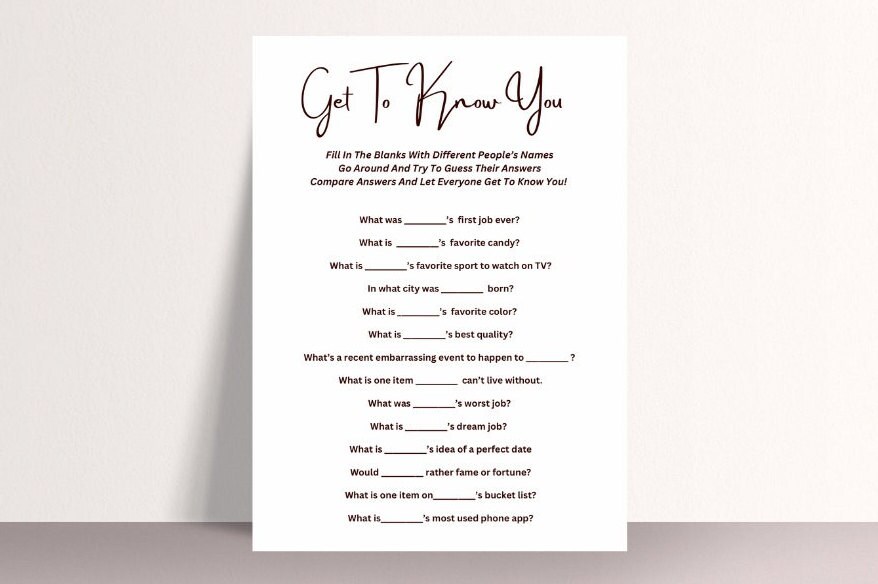 Get To Know You
Fill In The Blanks With Different People's Names
Go Around And Try To Guess Their Answers
Compare Answers And Let Everyone Get To Know You!
What was ________'s first job ever?
What is ________'s favorite candy?
What is ________'s favorite sport to watch on TV?
In what city was ________ born?
What is ________'s favorite color?
What is ________'s best quality?
What's a recent embarrassing event to happen to ________ ?
What is one item ________ can't live without.
What was ________'s worst job?
What is ________'s dream job?
What is ________'s idea of a perfect date
Would ________ rather fame or fortune?
What is one item on________'s bucket list?
What is________'s most used phone app?